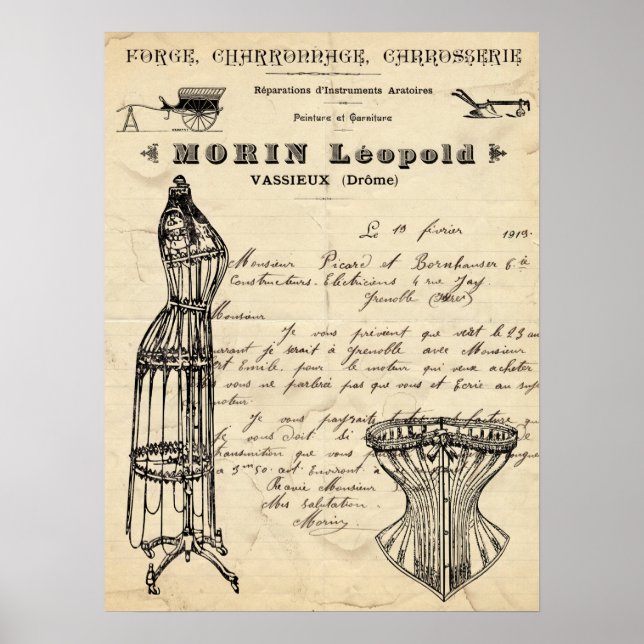 FORGE, CHARRONNAGE, CARROSSERIE
Réparations d'Instruments Aratoires
Peinture et Garniture
MORIN Léopold
VASSIEUX (Drôme)
Le 19 février 1913.
Monsieur Picard et Bornhauser
Constructeurs-Electriciens 4 rue Jay,
Grenoble (Isère)
Monsieur
Je vous prévient que vert le 23 au
je serait à Grenoble avec Monsieur
Emile, pour le moteur qui veux acheter
vous ne parlerée pas que vous et Ecrie au
moteur.
Je vous
vous doit si
que vous
a 3m50
Monsieur
Mes salutation
Morin